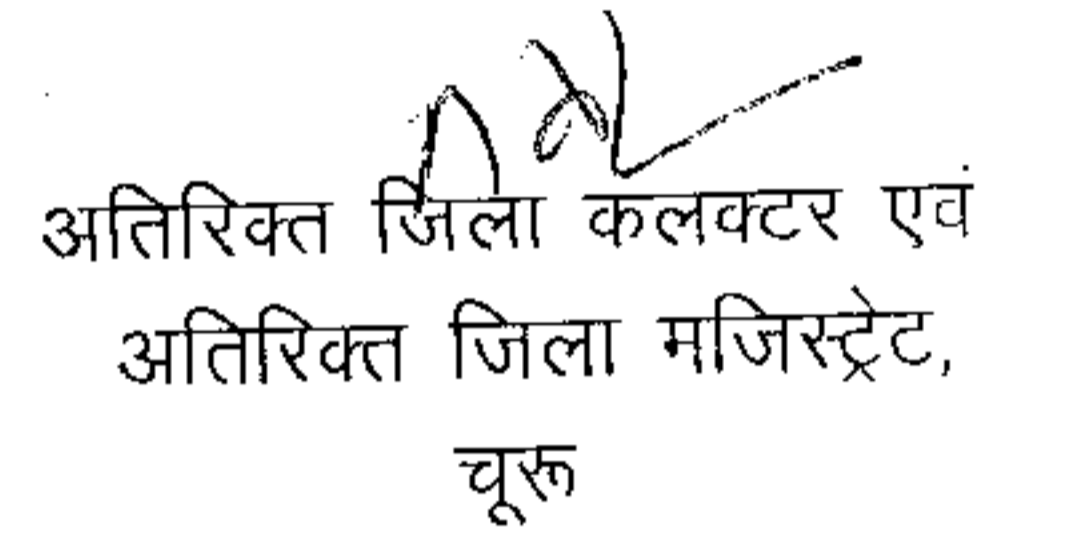 अतिरिक्त जिला कलक्टर एवं
अतिरिक्त जिला मजिस्ट्रेट,
चूरू